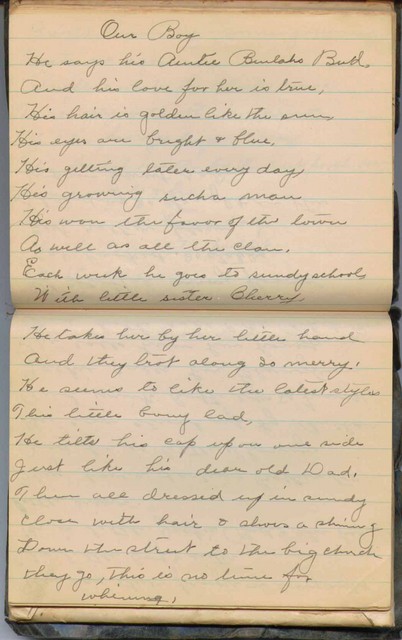 Our Boy
He says his Auntie Beulahs Bud,
And his love for her is true,
His hair is golden like the sun,
His eyes are bright & blue,
His getting later every day,
His growing such a man
His won the favor of the town
As well as all the clan.
Each week he goes to sundy school,
With little sister Cherry,
He takes her by her little hand
And they trot along so merry,
He seems to like the latest styles
This little bony lad,
He tilts his cap up on one side
Just like his dear old Dad.
Then all dressed up in sundy
close with hair & shoes a shining
Down the street to the big church
they go, this is no time for
whining,